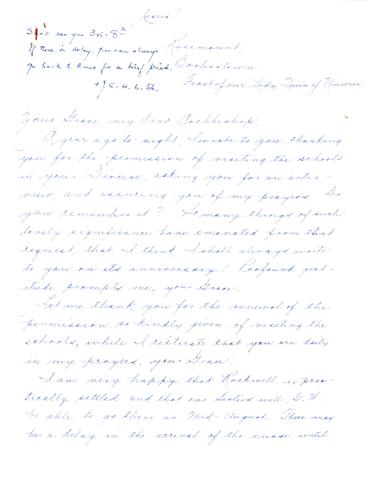 Jesus!
see you Fri. 8th
If there is delay, you can always
go back to Rome for a brief period.
J.C. H. 6. 56.
Rosemount,
Booterstown
Feast of our Lady, Queen of Universe
Your Grace my dear Archbishop,
A year ago to-night, I wrote to you thanking
you for the permission of visiting the schools
in your Diocese, asking you for an inter-
view and assuring you of my prayers. Do
you remember it? So many things of such
lovely significance have emanated from that
request, that I think I shall always write
to you on its anniversary! Profound grat-
itude prompts me, your Grace.
Let me thank you for the renewal of the
permission so kindly given, of visiting the
schools, while I reiterate that you are daily
in my prayers, your Grace.
I am very happy that Rockwell is prac-
tically settled and that our Sisters will, G.W.
be able to go there in Mid-August. There may
be a delay in the arrival of the nurse until